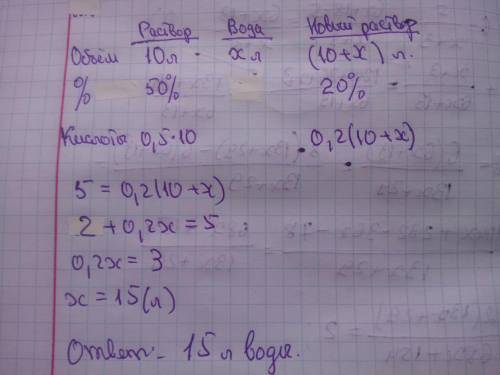 Раствор Вода Новый раствор
Объём 10л х л (10+х) л.
% 50% 20%
Кислоты 0,5·10 0,2(10+х)
5 = 0,2(10+х)
2 + 0,2х = 5
0,2х = 3
х = 15(л)
Ответ - 15 л воды.